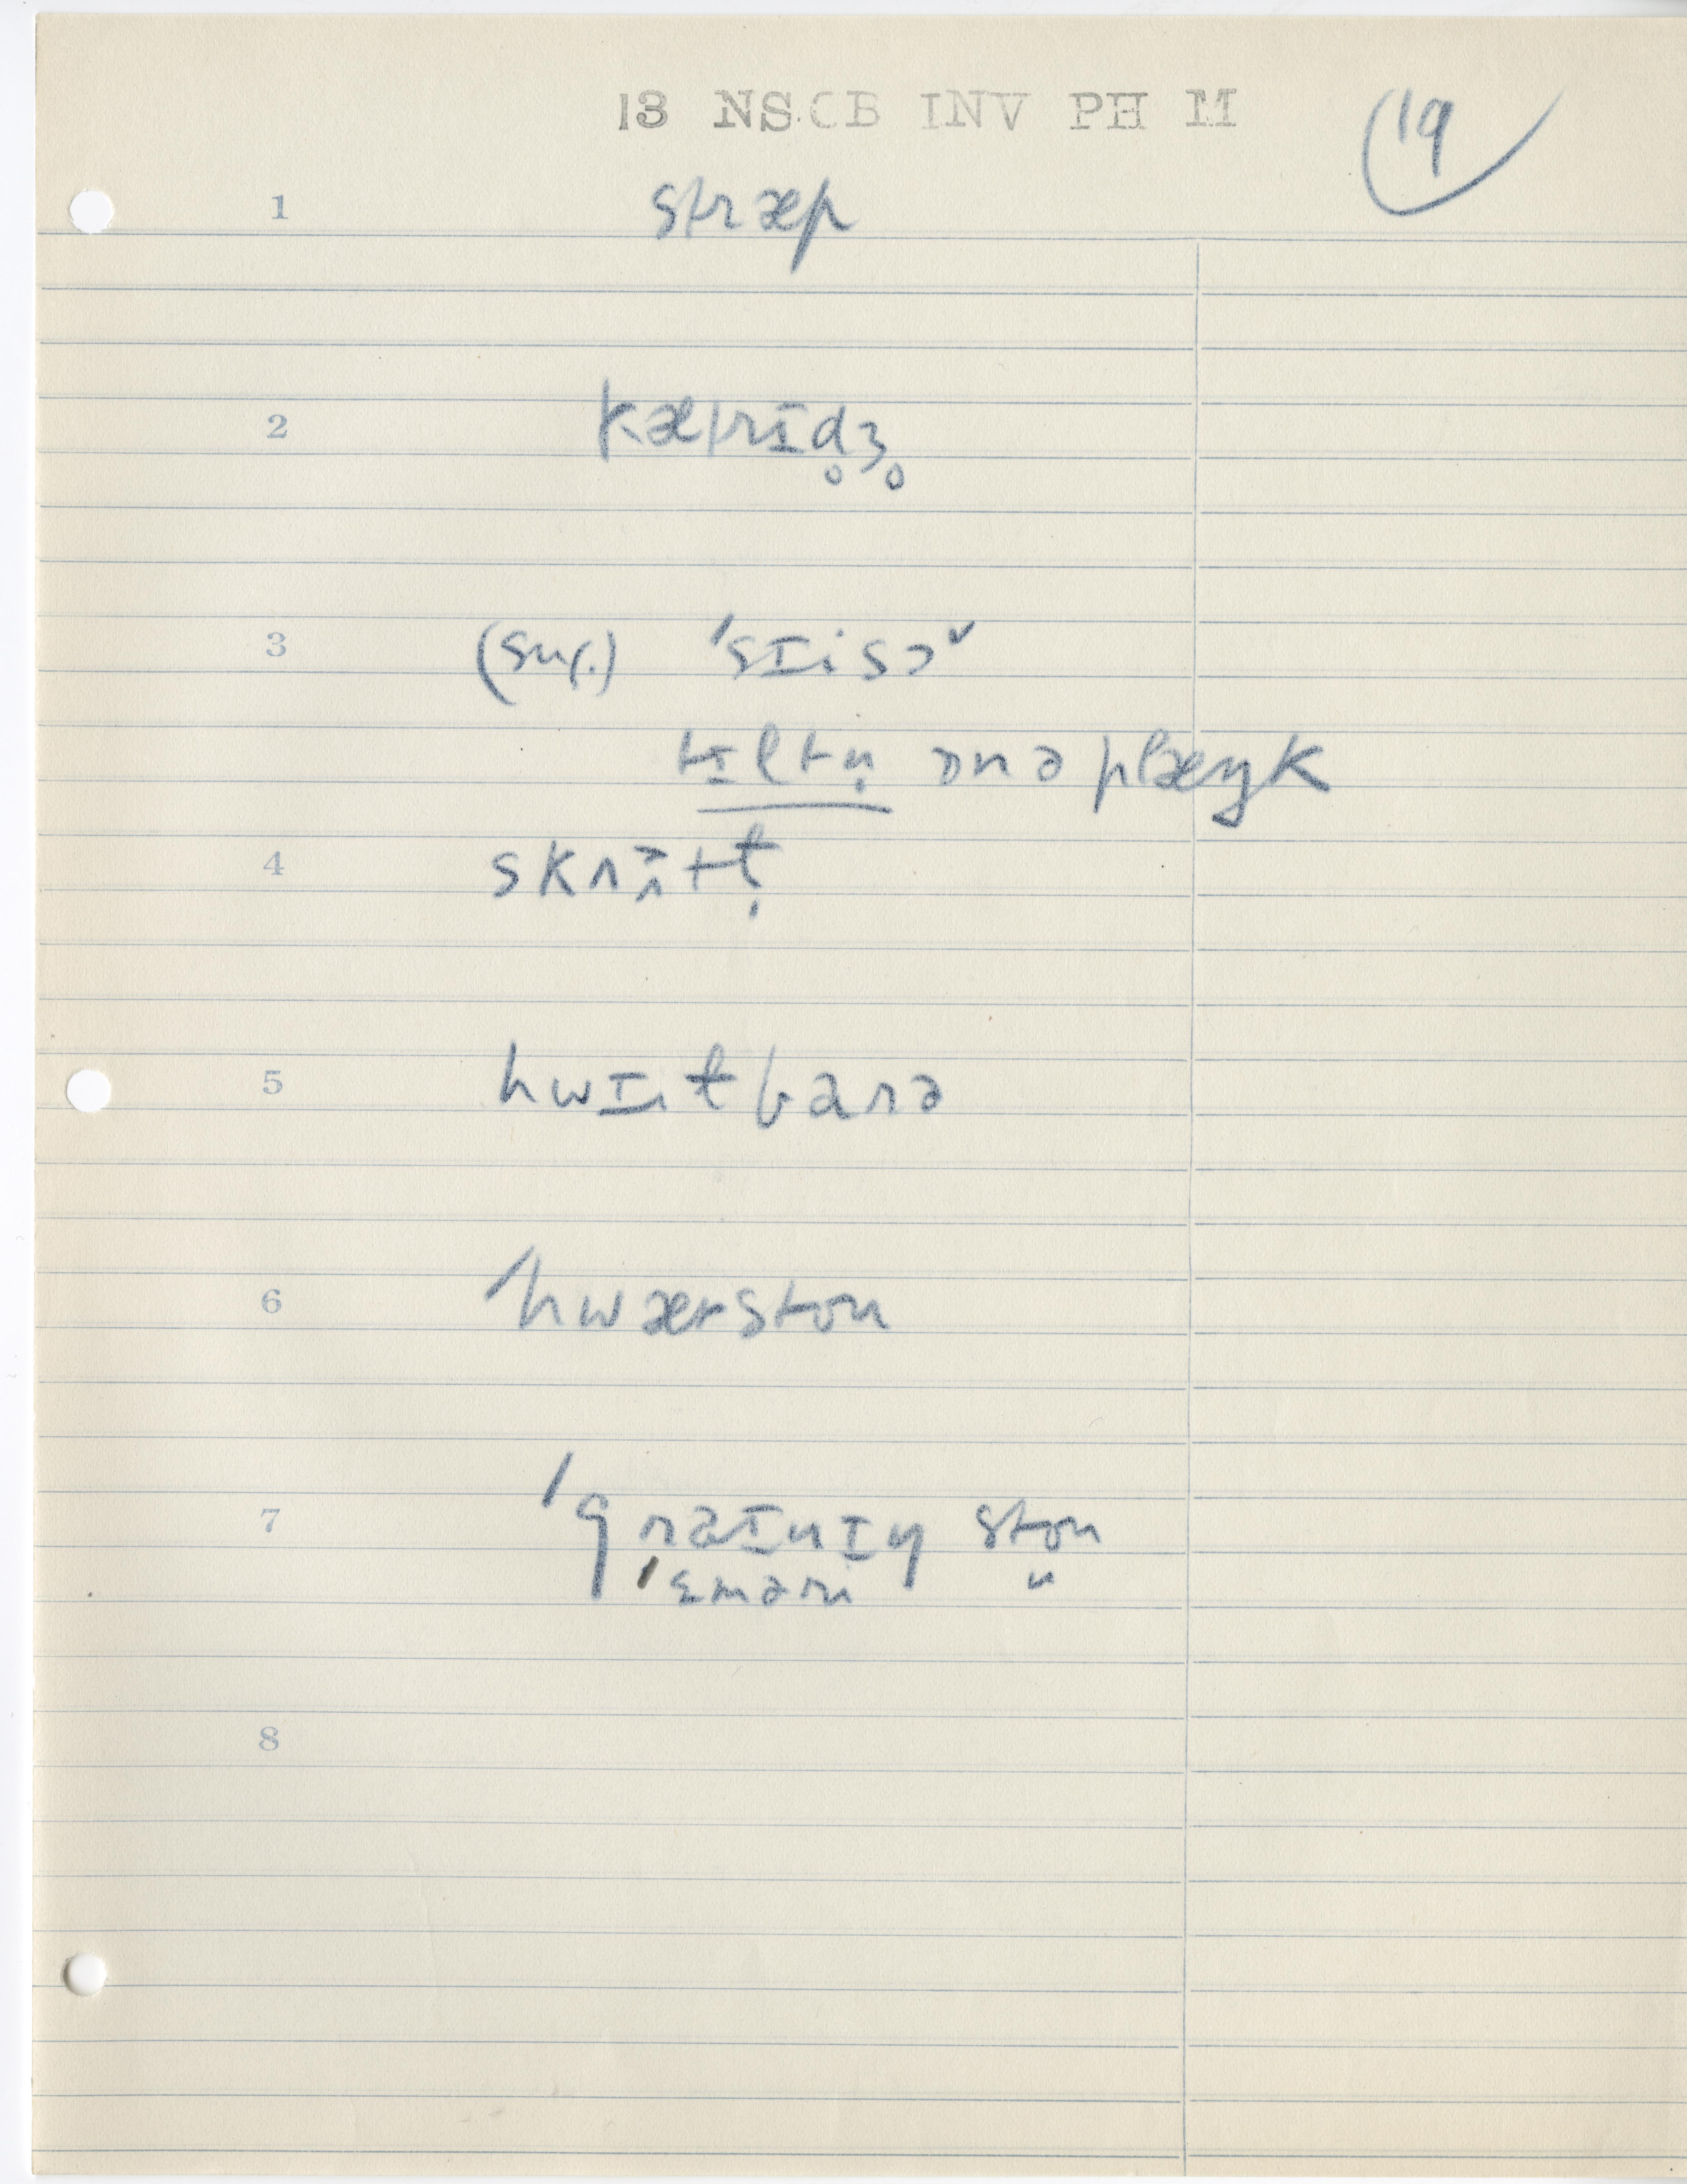 13 NSCB INV PH M
19
1 stræp
2 kætrɪd̥ʒ̊
3 (sug.) ˈsɪisɔ˅
tɪltn̩ ɒnə plæŋk
4
5 hwɪɩtbarə
6 ˈhwærston
7 ˈgraɪnɪŋ ston
ˈɛməri "
8